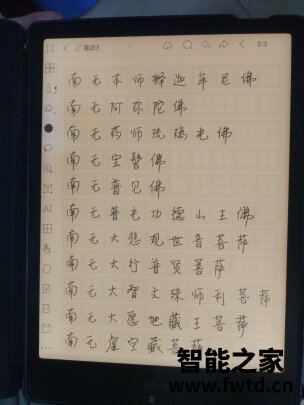 笔记3
2/2
南无本师释迦牟尼佛
南无阿弥陀佛
南无药师琉璃光佛
南无宝髻佛
南无普见佛
南无普光功德山王佛
南无大悲观世音菩萨
南无大行普贤菩萨
南无大智文殊师利菩萨
南无大愿地藏王菩萨
南无虚空藏菩萨
智能之家
www.fwtd.cn